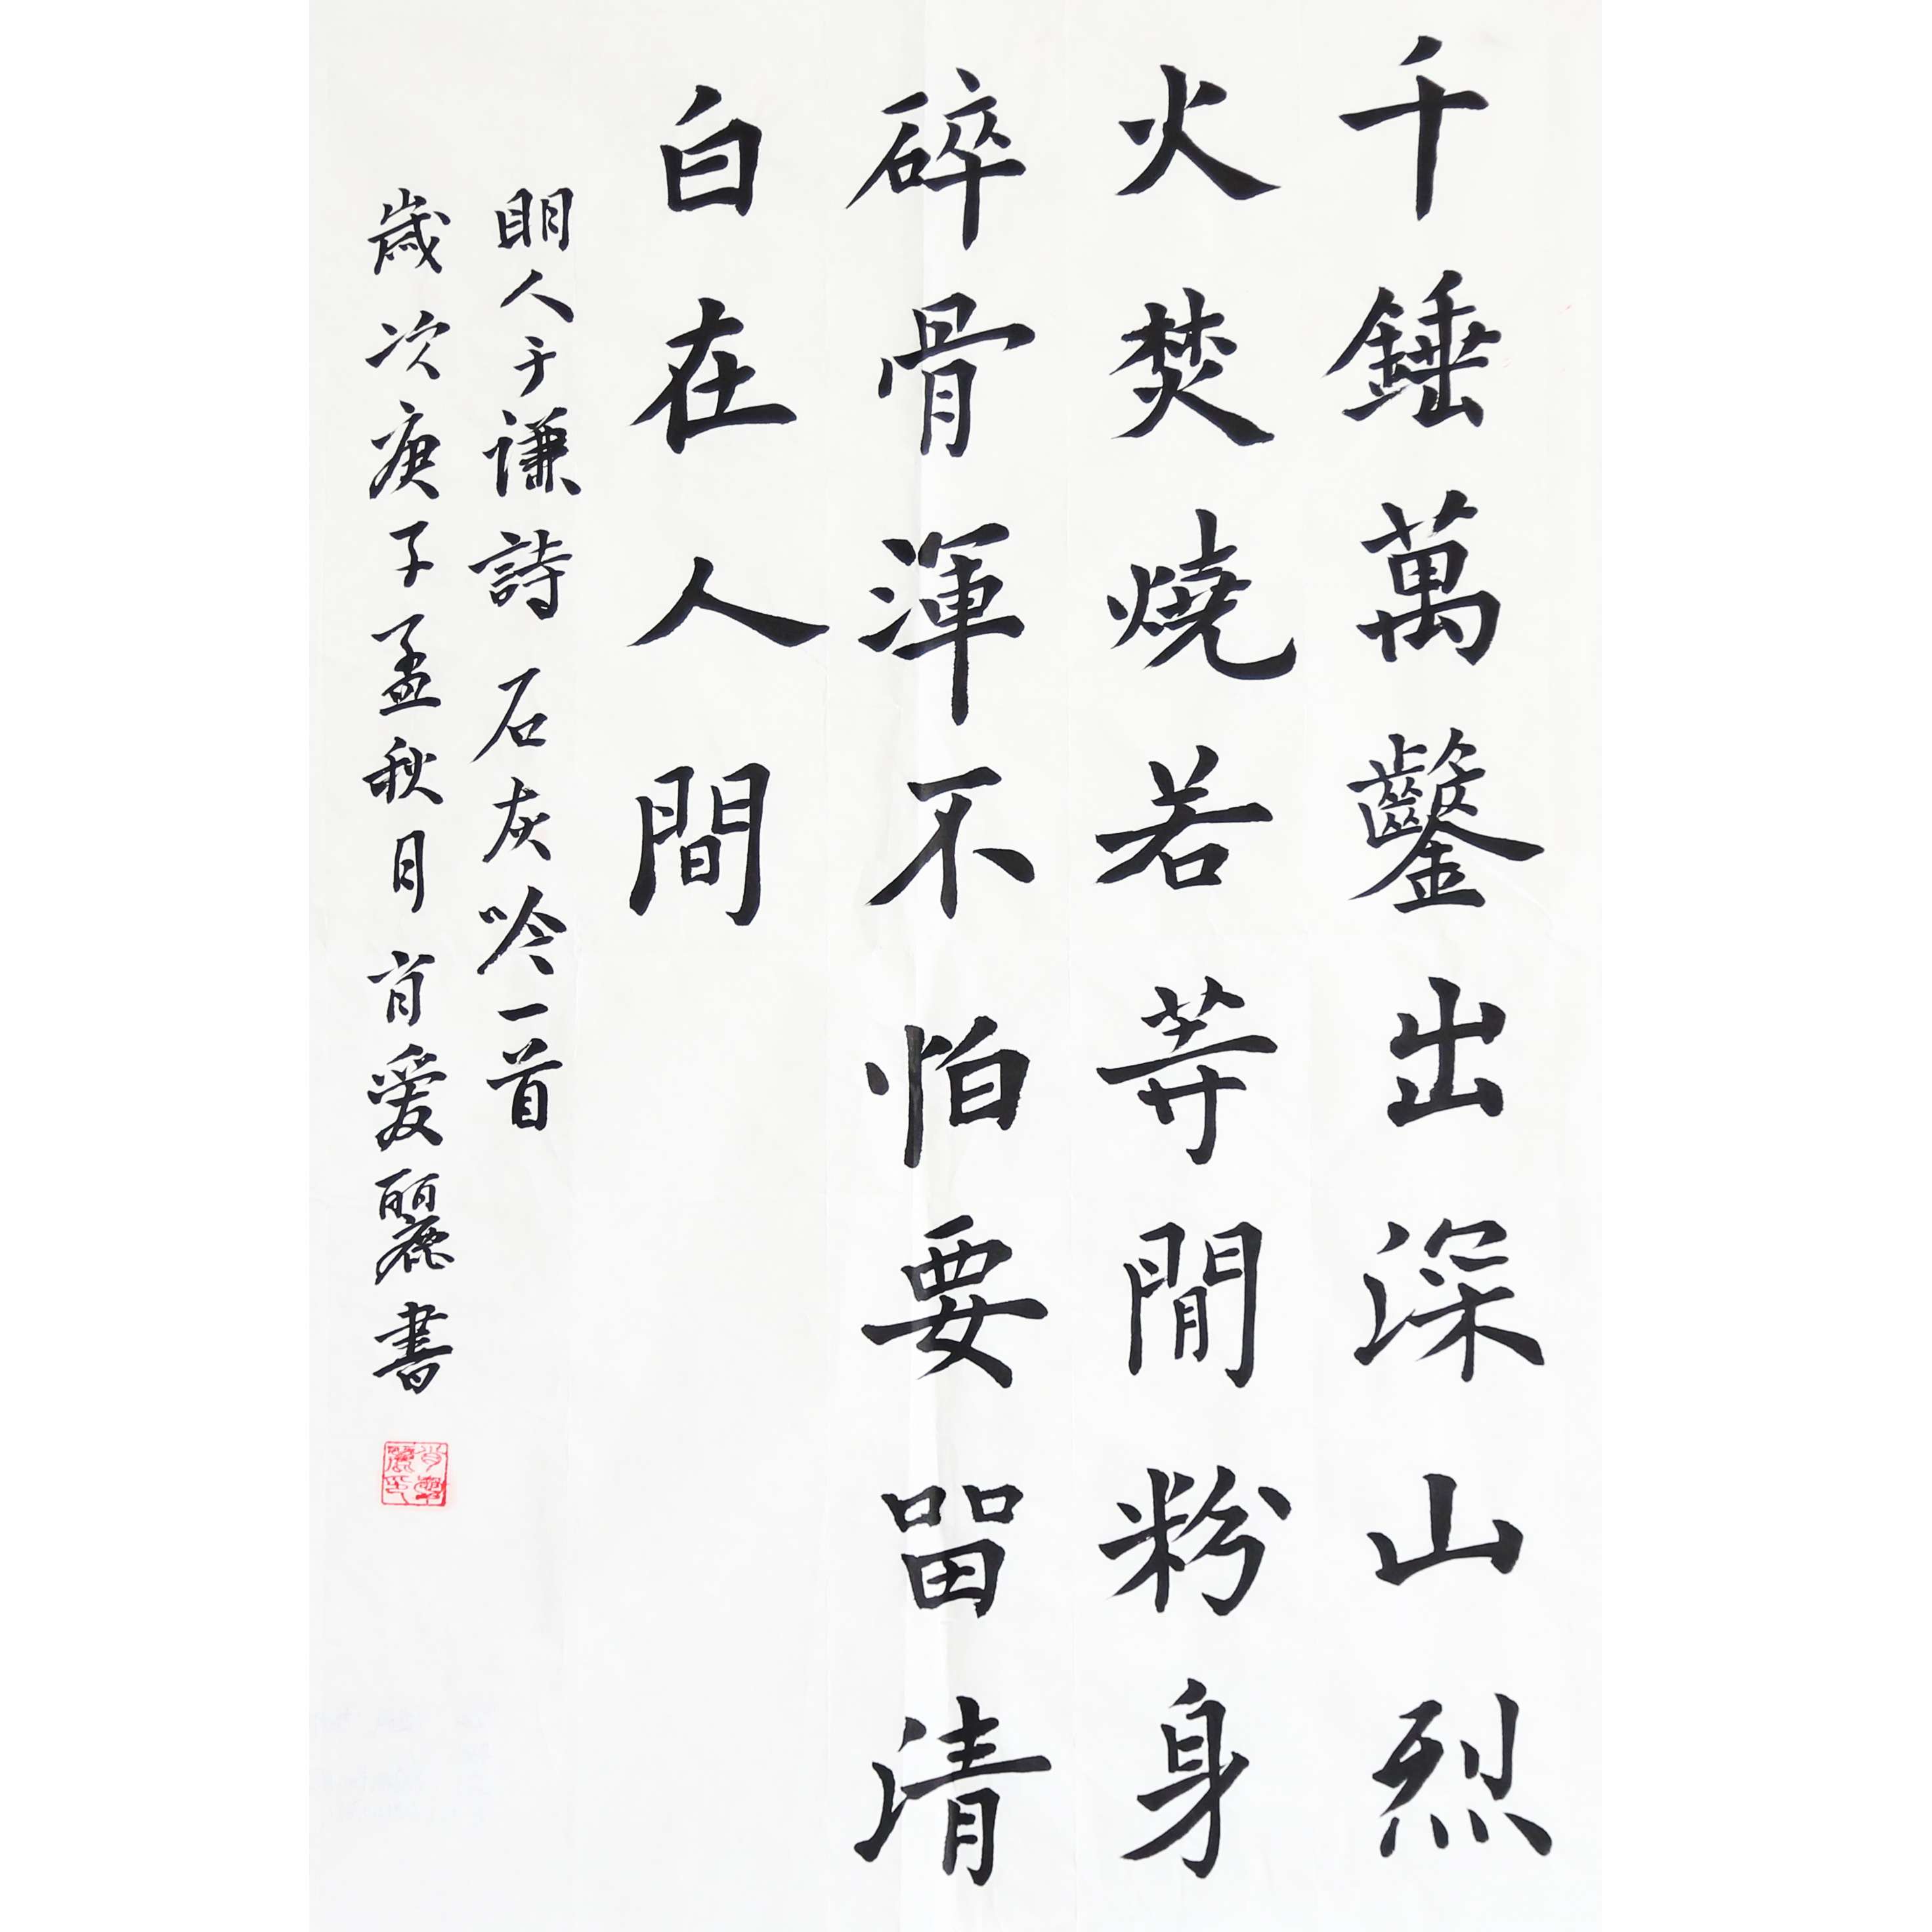 千錘萬鑿出深山烈
火焚燒若等閒粉身
碎骨渾不怕要留清
白在人間
明人于謙詩石灰吟一首
歲次庚子孟秋月肖愛麗書
肖愛麗印